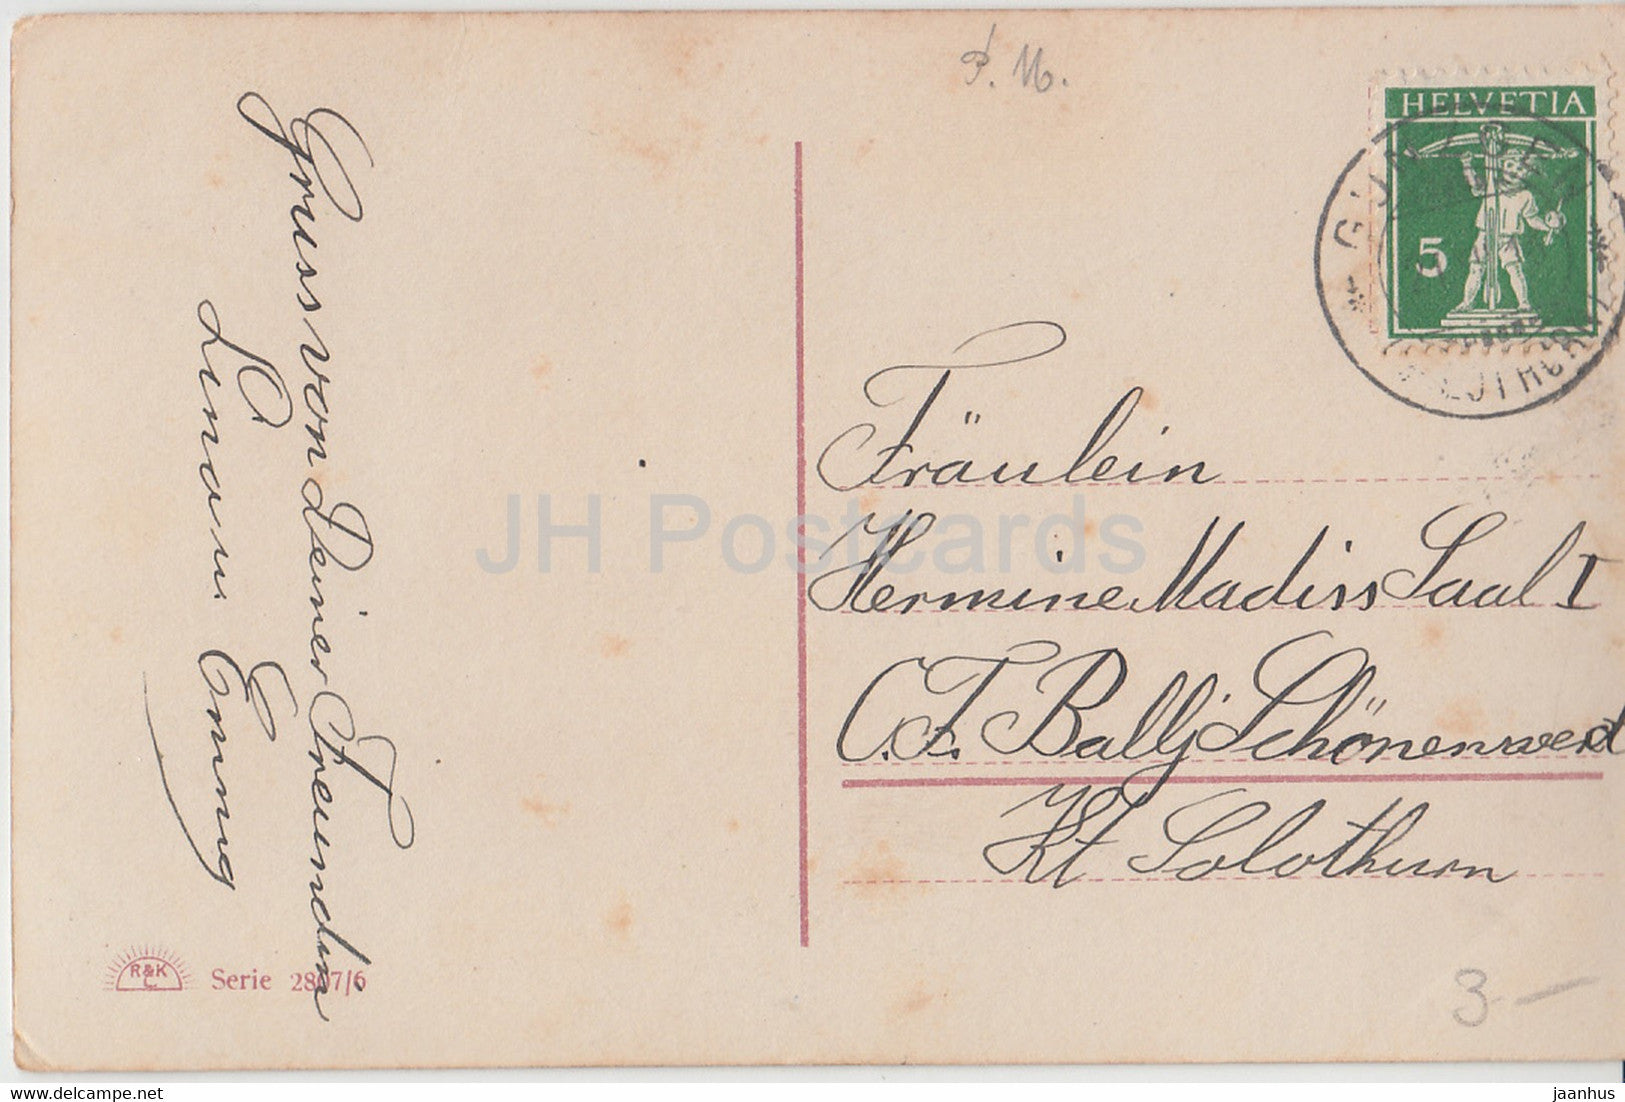 P. M.
HELVETIA
5
Gruss von Deiner Freundin
Fräulein
Hermine Madiss Saal I
C.F. Bally Schönenwerd
Kt Solothurn
R&K
L
Serie 2807/6
3 –
JH Postcards
www.delcampe.net
jaanhus